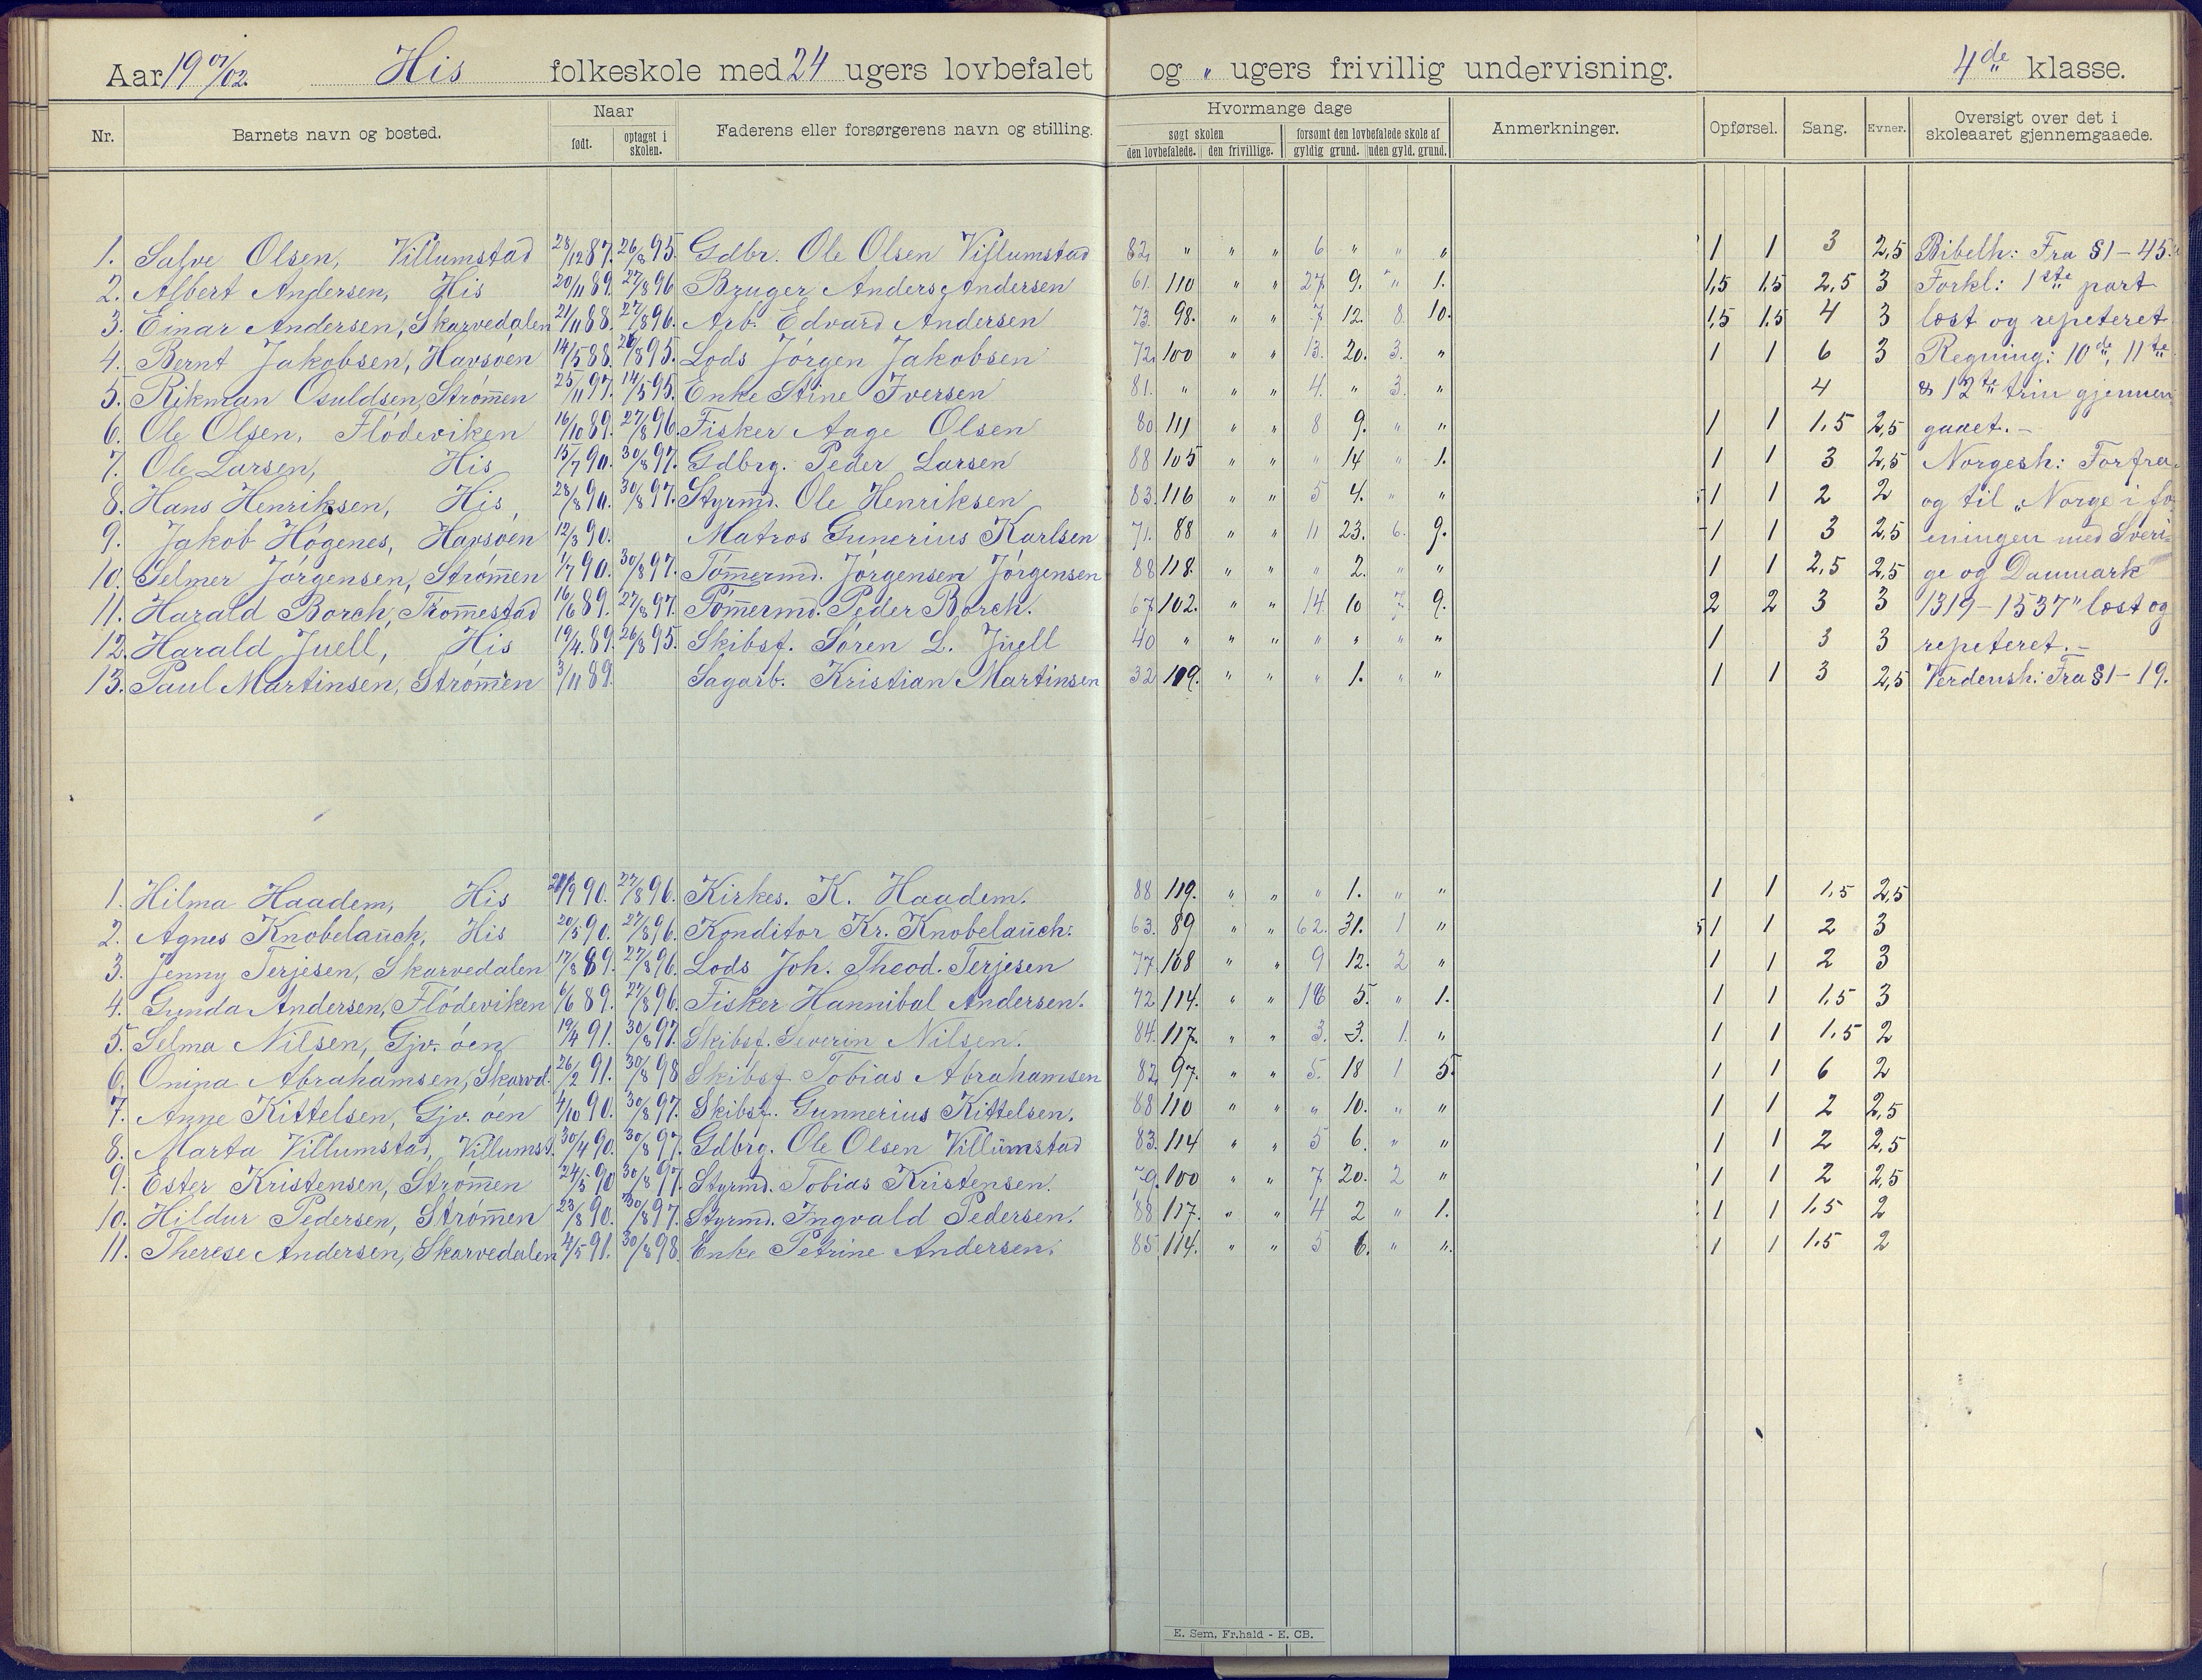 Aar 19 01/02. His folkeskole med 24 ugers lovbefalet og " ugers frivillig undervisning. 4de klasse.
Nr. Barnets navn og bosted. Naar født. optaget i skolen. Faderens eller forsørgerens navn og stilling. Hvormange dage søgt skolen den lovbefalede. den frivillige. forsømt den lovbefalede skole af gyldig grund. uden gyld. grund. Anmerkninger. Opførsel. Sang. Evner. Oversigt over det i skoleaaret gjennemgaaede.
1. Salve Olsen, Villumstad 28/12 87. 26/8 95. Gdbr. Ole Olsen Villumstad 82, " " " 6 " " " 1 1 3 2,5 Bibelh: Fra §1-45.
2. Albert Andersen, His 20/11 89. 27/8 96 Bruger Anders Andersen 61. 110 " " 27. 9. " 1. 1,5 1,5 2,5 3 Forkl: 1ste part
3. Einar Andersen, Skarvedalen 21/11 88. 27/8 96. Arb. Edvard Andersen 73. 98. " " 7 12. 8. 10. 1,5 1,5 4 3 læst og repeteret
4. Bernt Jakobsen, Havsøen 14/5 88. 26/8 95. Lods Jørgen Jakobsen 72, 100 " " 13. 20. 3. " 1 1 6 3 Regning: 10de, 11te
5. Rikman Osuldsen, Strømen 25/11 97. 14/5 95. Enke Stine Iversen 81. " " " 4. " 3. " 4 & 12te trin gjennem
6. Ole Olsen, Flödeviken 16/10 89. 27/8 96. Fisker Aage Olsen 80 111 " " 8 9. " " 1 1 1,5 2,5 gaaet.-
7. Ole Larsen, His 15/7 90. 30/8 97. Gdbrg. Peder Larsen 88 105 " " " 14 " 1. 1 1 3 2,5 Norgesh: Forfra
8. Hans Henriksen, His, 28/8 90. 30/8 97. Styrmd. Ole Henriksen 83. 116 " " 5 4. " " 1 1 2 2 og til "Norge i fo
9. Jakob Høgenes, Havsøen 12/3 90. Matros Gunerius Karlsen 71. 88 " " 11 23. 6. 9. 1 1 3 2,5 eningen med Sveri=
10. Selmer Jørgensen, Strømen 1/7 90. 30/8 97. Tømermd. Jørgensen Jørgensen 88 118. " " " 2. " " 1 1 2,5 2,5 ge og Danmark
11. Harald Borch, Tromestad 16/6 89. 27/8 97. Tømermd. Peder Borch. 67. 102. " " 14. 10 7. 9. 2 2 3 3 1319-1537" læst og
12. Harald Juell, His 19/4 89. 26/8 95. Skibsf. Søren L. Juell 40 " " " " " " " 1 3 3 repeteret.-
13. Paul Martinsen, Strømen 3/11 89. Sagarb. Kristian Martinsen 32 119. " " " 1. " " 1 1 3 2,5 Verdensh: Fra §1-19.
1. Hilma Haadem, His 90. 27/8 96. Kirkes. K. Haadem. 88 119. " " " 1. " " 1 1 1,5 2,5
2. Agnes Knobelauch, His 20/5 90. 27/8 96. Konditor Kr. Knobelauch. 63. 89 " " 62. 31. 1 " 1 1 2 3
3. Jenny Terjesen, Skarvedalen 17/8 89. 27/8 96. Lods Joh. Theod. Terjesen 77 108 " " 9 12. 2 " 1 1 2 3
4. Gunda Andersen, Flödeviken 6/6 89. 27/8 96. Fisker Hannibal Andersen. 72 114. " " 16 5. " 1. 1 1 1,5 3
5. Selma Nilsen, Gjv. øen 19/4 91. 30/8 97. Skibsf. Severin Nilsen. 84. 117. " " 3. 3. 1. " 1 1 1,5 2
6. Onina Abrahamsen, Skarvd. 26/2 91. 30/8 98 Skibsf. Tobias Abrahamsen 82, 97. " " 5. 18 1 5. 1 1 6 2
7. Anne Kittelsen, Gjv. øen 4/10 90. 30/8 97. Skibsf. Gunnerius Kittelsen. 88 110 " " " 10. " " 1 1 2 2,5
8. Marta Villumstad, Villumst. 30/4 90. 30/8 97. Gdbrg. Ole Olsen Villumstad 83. 114 " " 5 6. " " 1 1 2 2,5
9. Ester Kristensen, Strømen 24/5 90 30/8 97. Styrmd. Tobias Kristensen. 79. 100 " " 7 20. 2 " 1 1 2 2,5
10. Hildur Pedersen, Strømen 23/8 90. 30/8 97. Styrmd. Ingvald Pedersen. 88 117. " " 4 2 " 1. 1 1 1,5 2
11. Therese Andersen, Skarvedalen 4/5 91. 30/8 98. Enke Petrine Andersen. 85 114. " " 5 6. " ". 1 1 1,5 2
E. Sem, Fr.hald - E. CB.